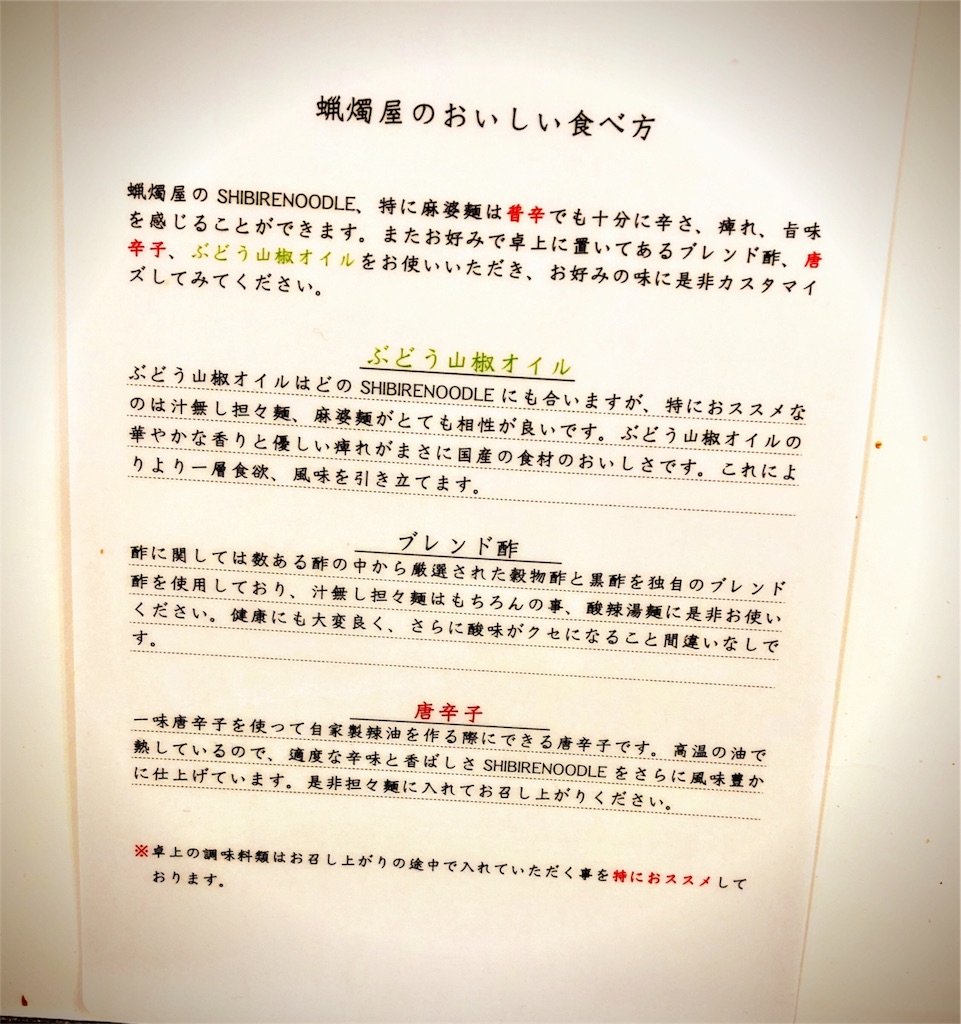 蝋燭屋のおいしい食べ方
蝋燭屋の SHIBIRENOODLE、特に麻婆麺は普辛でも十分に辛さ、痺れ、旨味
を感じることができます。またお好みで卓上に置いてあるブレンド酢、唐
辛子、ぶどう山椒オイルをお使いいただき、お好みの味に是非カスタマイ
ズしてみてください。
ぶどう山椒オイル
ぶどう山椒オイルはどの SHIBIRENOODLE にも合いますが、特におススメな
のは汁無し担々麺、麻婆麺がとても相性が良いです。ぶどう山椒オイルの
華やかな香りと優しい痺れがまさに国産の食材のおいしさです。これによ
りより一層食欲、風味を引き立てます。
ブレンド酢
酢に関しては数ある酢の中から厳選された穀物酢と黒酢を独自のブレンド
酢を使用しており、汁無し担々麺はもちろんの事、酸辣湯麺に是非お使い
ください。健康にも大変良く、さらに酸味がクセになること間違いなしで
す。
唐辛子
一味唐辛子を使つて自家製辣油を作る際にできる唐辛子です。高温の油で
熱しているので、適度な辛味と香ばしさ SHIBIRENOODLE をさらに風味豊か
に仕上げています。是非担々麺に入れてお召し上がりください。
※卓上の調味料類はお召し上がりの途中で入れていただく事を特におススメして
おります。